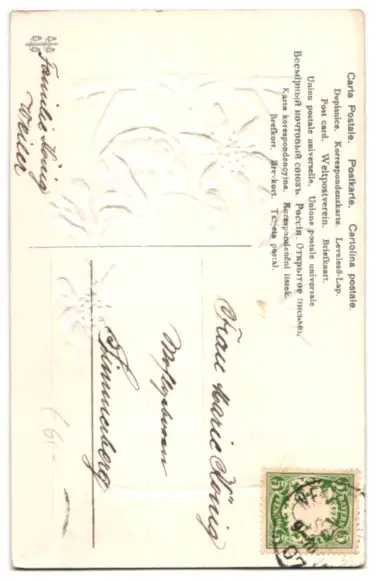 Carte Postale. Postkarte. Cartolina postale
Dopisnice. Korrespondenskarte. Levelező-Lap.
Post card. Weltpostverein. Briefkaart.
Union postale universelle. Unione postale universale
Всемірный почтовый союзъ. Россія. Открытое письмо.
Karta korespondencyjna. Korespondenční lístek.
Brefkort. Brevkort. Tarjeta postal.
Familie König
Weiler
Frau Marie König
Simmerberg